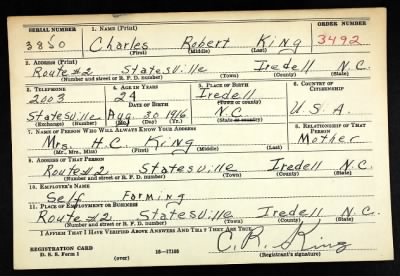 SERIAL NUMBER 1. NAME (Print) ORDER NUMBER
3850 Charles Robert King 3492
(First) (Middle) (Last)
2. ADDRESS (Print)
Route#2 Statesville Iredell N.C.
(Number and street or R. F. D. number) (Town) (County) (State)
3. TELEPHONE 4. AGE IN YEARS 5. PLACE OF BIRTH 6. COUNTRY OF CITIZENSHIP
2003 24 Iredell
DATE OF BIRTH (Town or county)
Statesville Aug. 30 1916 N.C. U.S.A
(Exchange) (Number) (Mo.) (Day) (Yr.) (State or country)
7. NAME OF PERSON WHO WILL ALWAYS KNOW YOUR ADDRESS 8. RELATIONSHIP OF THAT PERSON
Mrs. H.C. King Mother
(Mr., Mrs., Miss) (First) (Middle) (Last)
9. ADDRESS OF THAT PERSON
Route#2 Statesville Iredell N.C.
(Number and street or R. F. D. number) (Town) (County) (State)
10. EMPLOYER'S NAME
Self Farming
11. PLACE OF EMPLOYMENT OR BUSINESS
Route#2 Statesville Iredell N.C.
(Number and street or R. F. D. number) (Town) (County) (State)
I AFFIRM THAT I HAVE VERIFIED ABOVE ANSWERS AND THAT THEY ARE TRUE.
REGISTRATION CARD C.R. King
D. S. S. Form 1 (over) 16—17105 (Registrant's signature)